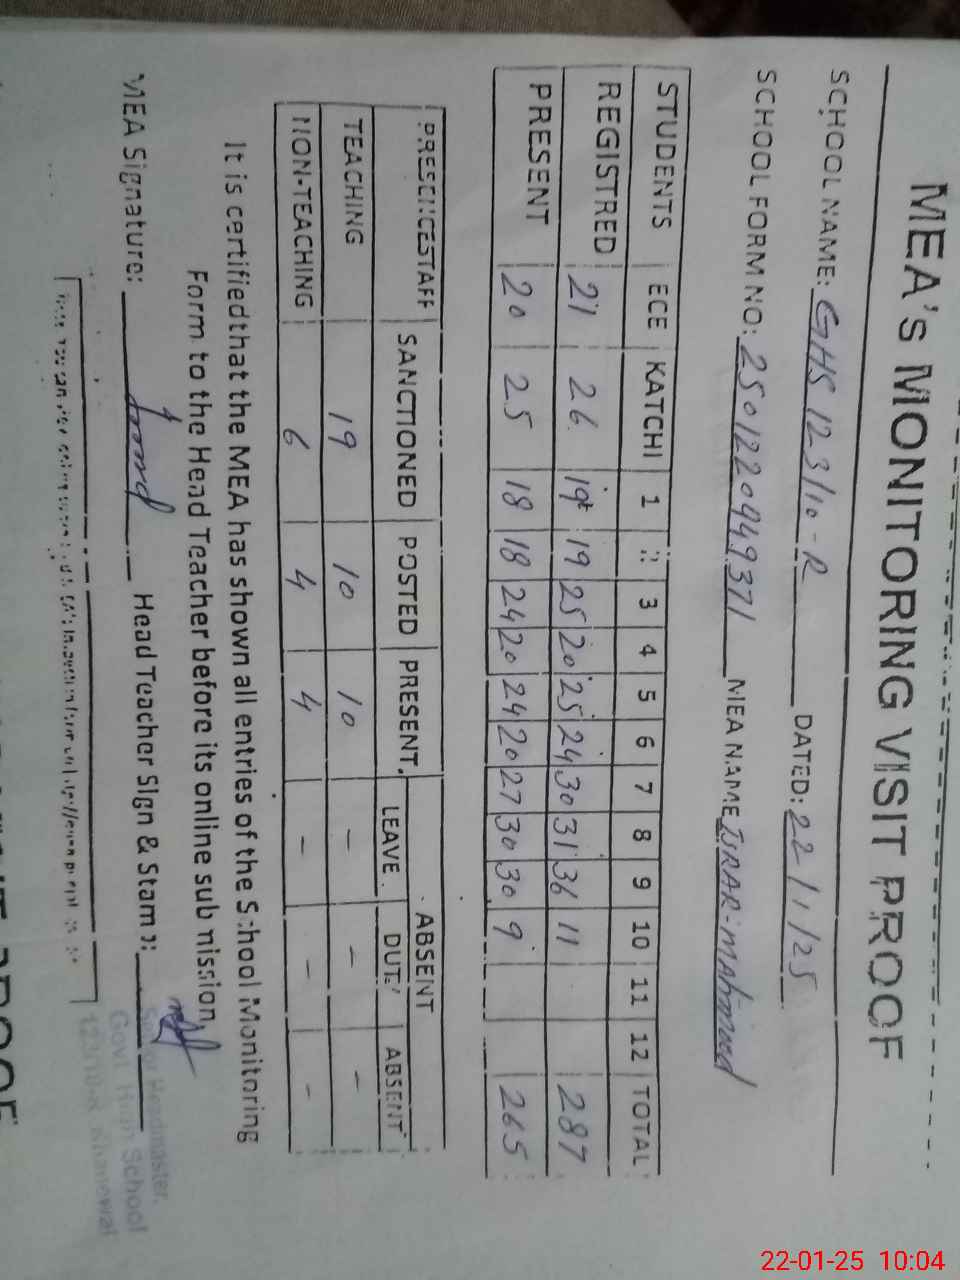 MEA's MONITORING VISIT PROOF
SCHOOL NAME: GHS 123/10-R DATED: 22/1/25
SCHOOL FORM NO: 250122094937 MEA NAME ISRAR-Mahmood
STUDENTS ECE KATCHI 1 2 3 4 5 6 7 8 9 10 11 12 TOTAL
REGISTRED 21 26 19 19 25 20 25 24 30 31 36 11 287
PRESENT 20 25 18 18 24 20 24 20 27 30 30 9 265
ABSENT
PRESENCESTAFF SANCTIONED POSTED PRESENT LEAVE DUTY ABSENT
TEACHING 19 10 10 - - -
NON-TEACHING 6 4 4 - - -
It is certifiedthat the MEA has shown all entries of the School Monitoring
Form to the Head Teacher before its online submission
MEA Signature: Head Teacher Sign & Stamp:
Senior Headmaster,
Govt. High School
123/10-R Khanewal
22-01-25 10:04